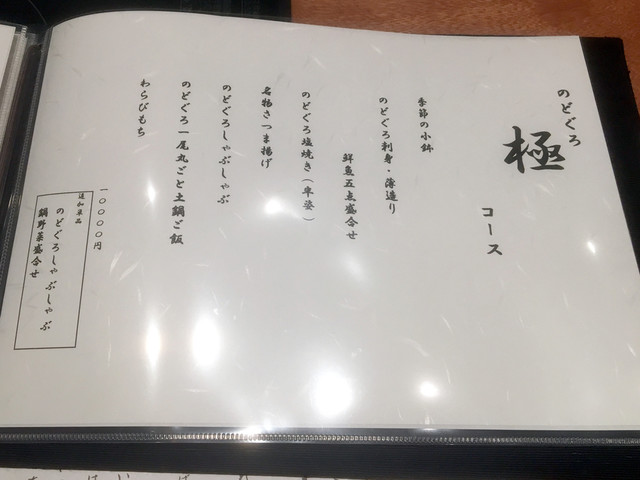 のどぐろ
極
コース
季節の小鉢
のどぐろ刺身・薄造り
鮮魚五点盛合せ
のどぐろ塩焼き(半姿)
名物さつま揚げ
のどぐろしゃぶしゃぶ
のどぐろ一尾丸ごと土鍋ご飯
わらびもち
一〇〇〇〇円
追加単品
のどぐろしゃぶしゃぶ
鍋野菜盛合せ